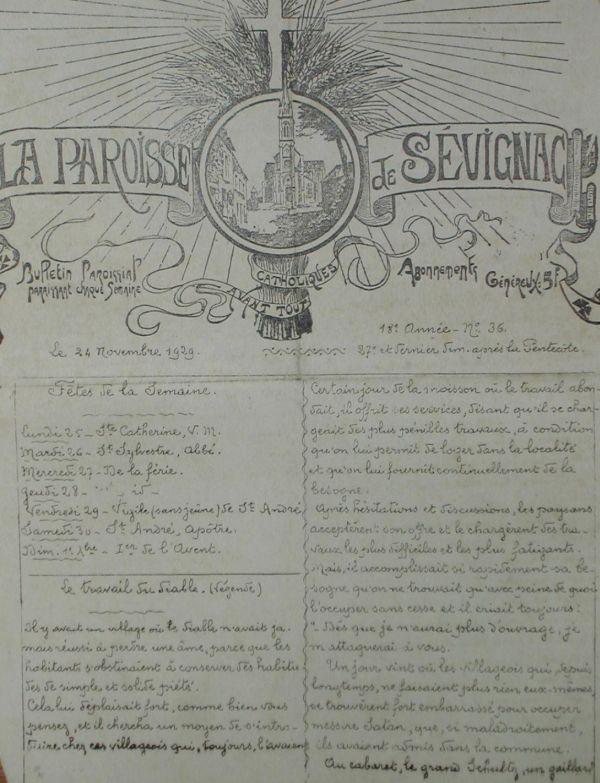 LA PAROISSE de SÉVIGNAC
Bulletin Paroissial
paraissant chaque Semaine
CATHOLIQUES
AVANT TOUT
Abonnements Généreux: 5F
18e Année - No 36.
Le 24 Novembre 1929.
27e et dernier dim. après la Pentecôte.
Fêtes de la Semaine.
Lundi 25 - Ste Catherine, V. M.
Mardi 26 - St Sylvestre, Abbé.
Mercredi 27 - De la férie.
Jeudi 28 - " id -
Vendredi 29 - Vigile (sans jeûne) de St André
Samedi 30 - St André, Apôtre.
Dim. 1er Xbre - Ier de l'Avent.
Le travail du diable. (Légende)
Il y avait un village où le diable n'avait ja-
mais réussi à perdre une âme, parce que les
habitants s'obstinaient à conserver des habitu
des de simple, et solide piété.
Cela lui déplaisait fort, comme bien vous
pensez, et il chercha un moyen de s'intro-
duire chez ces villageois qui, toujours, l'avaient
Certain jour de la moisson où le travail abon-
dait, il offrit ses services, disant qu'il se char-
gerait des plus pénibles travaux, à condition
qu'on lui permit de loger dans la localité
et qu'on lui fournit continuellement de la
besogne.
Après hésitations et discussions, les paysans
acceptèrent son offre et le chargèrent des tra-
vaux les plus difficiles et les plus fatigants.
Mais, il accomplissait si rapidement sa be-
sogne qu'on ne trouvait qu'avec peine de quoi
l'occuper sans cesse et il criait toujours:
"- Dès que je n'aurai plus d'ouvrage, je
m'attaquerai à vous.
Un jour vint où les villageois qui, depuis
longtemps, ne faisaient plus rien eux-mêmes,
se trouvèrent fort embarrassé pour occuper
messire Satan, que, si maladroitement,
ils avaient admis dans la commune.
Au cabaret, le grand Schultz, un gaillard